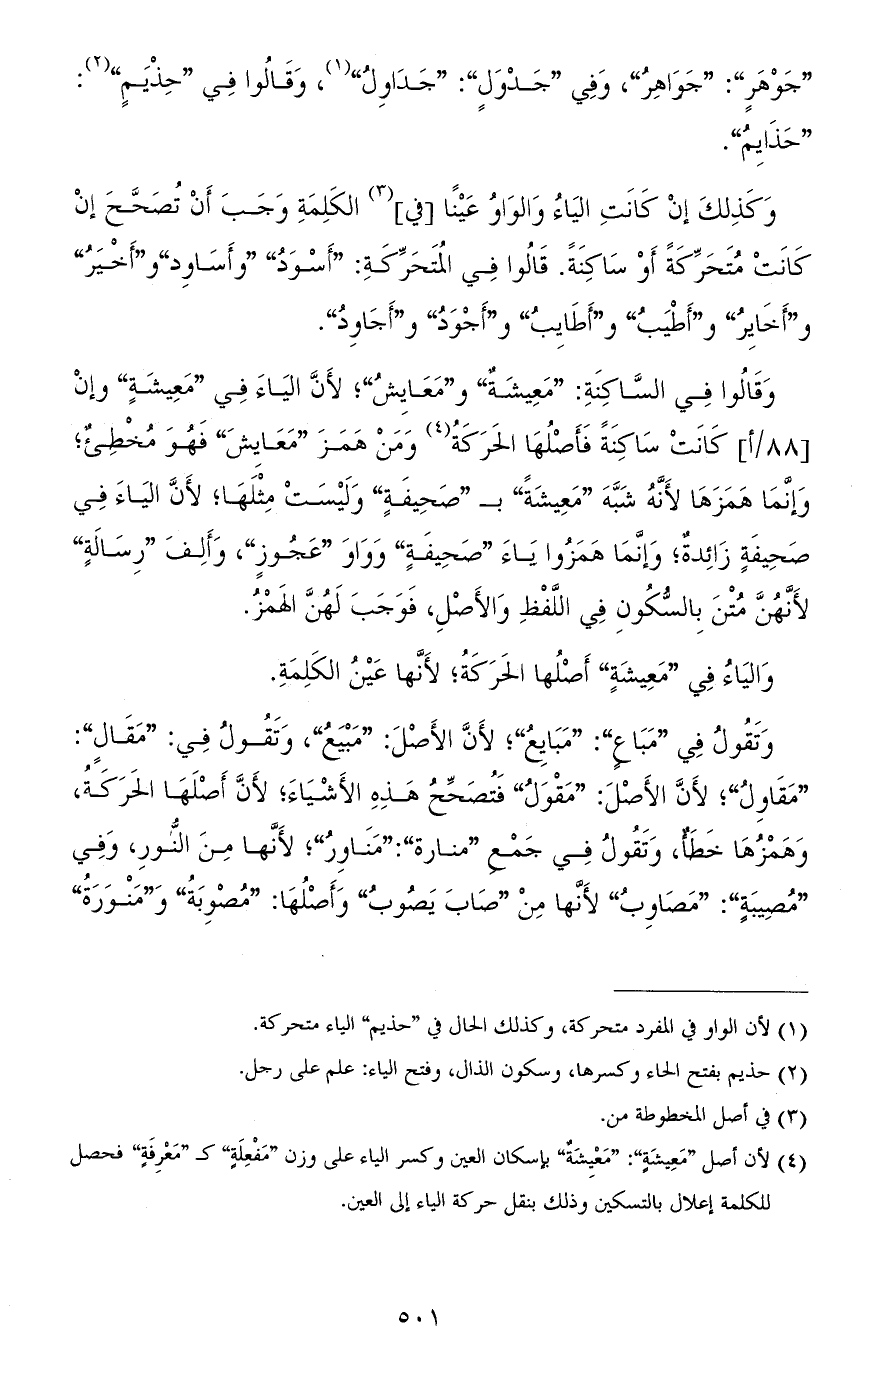 ”جَوْهَرٍ“: ”جَوَاهِرُ“، وَفِي ”جَـدْوَلٍ“: ”جَـدَاوِلُ“(١)، وَقَـالُوا فِـي ”حِذْيَـمٍ“(٢):
”حَذَايِمُ“.
وَكَذلِكَ إنْ كَانَتِ اليَاءُ وَالوَاوُ عَيْنًا [في](٣) الكَلِمَةِ وَجَـبَ أَنْ تُصَحَّـحَ إنْ
كَانَتْ مُتَحَرِّكَةً أَوْ سَاكِنَةً. قَالُوا فِـي المُتَحَرِّكَـةِ: ”أَسْوَدُ“ ”وأَسَـاوِد“و”أَخْيَرُ“
و”أَخَايِرُ“ و”أَطْيَبُ“ و”أَطَايِبُ“ و”أَجْوَدُ“ و”أَجَاوِدُ“.
وَقَالُوا فِـي السَّـاكِنَةِ: ”مَعِيشَـةٌ“ و”مَعَـايشُ“؛ لأَنَّ اليَـاءَ فِـي ”مَعِيشَـةٍ“ وإنْ
[٨٨/أ] كَانَتْ سَاكِنَةً فَأَصْلُهَا الحَرَكَةُ(٤) وَمَنْ هَمَـزَ ”مَعَـايشَ“ فَهُـوَ مُخْطِئٌ؛
وَإنَّمَا هَمَزَهَا لأَنَّهُ شَبَّهَ ”مَعِيشَةً“ بـ ”صَحِيفَةٍ“ وَلَيْسَـتْ مِثْلَهَـا؛ لأَنَّ اليَـاءَ فِـي
صَحِيفَةٍ زَائِدةٌ؛ وَإنَّمَا هَمَزُوا يَـاءَ ”صَحِيفَـةٍ“ وَوَاوَ ”عَجُـوزٍ“، وَأَلِـفَ ”رِسَـالَةٍ“
لأَنَّهُنَّ مُتْنَ بِالسُّكُونِ فِي اللَّفْظِ وَالأَصْلِ، فَوَجَبَ لَهُنَّ الهَمْزُ.
وَاليَاءُ فِي ”مَعِيشَةٍ“ أصْلُها الحَرَكَةُ؛ لأَنَّها عَيْنُ الكَلِمَةِ.
وَتَقُولُ فِي ”مَبَاعٍ“: ”مَبَايِعُ“؛ لأَنَّ الأَصْلَ: ”مَبْيَعُ“، وَتَقُـولُ فِـي: ”مَقَـالٍ“:
”مَقَاوِلُ“؛ لأَنَّ الأَصْلَ: ”مَقْوَلُ“ فَتُصَحِّحُ هَـذِهِ الأَشْيَاءَ؛ لأَنَّ أَصْلَهَـا الحَرَكَـةُ،
وَهَمْزُهَا خَطَأٌ، وَتَقُولُ فِـي جَمْعِ ”منـارة“:”مَنَـاوِرُ“؛ لأَنَّهـا مِـنَ النُّـورِ، وَفِـي
”مُصِيبَةٍ“: ”مَصَاوِبُ“ لأَنَّها مِنْ ”صَابَ يَصُوبُ“ وَأَصْلُهَا: ”مُصْوِبَةُ“ وَ”مَنْـوَرَةُ“
(١) لأن الواو في المفرد متحركة، وكذلك الحال في ”حذيم“ الياء متحركة.
(٢) حذيم بفتح الحاء وكسرها، وسكون الذال، وفتح الياء: علم على رجل.
(٣) في أصل المخطوطة من.
(٤) لأن أصل ”مَعِيشَةٍ“: ”مَعْيِشَةٌ“ بإسكان العين وكسر الياء على وزن ”مَفْعِلَةٍ“ كـ ”مَعْرِفَةٍ“ فحصل
للكلمة إعلال بالتسكين وذلك بنقل حركة الياء إلى العين.
٥٠١